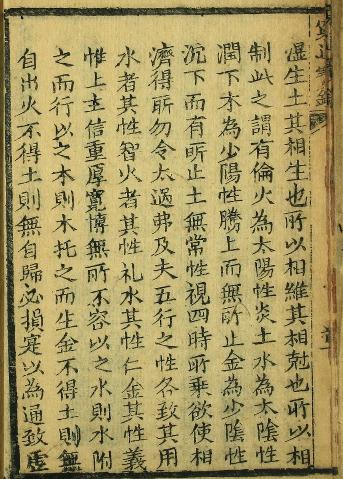 湿生土其相生也所以相維其相尅也所以相
制此之謂有倫火為太陽性炎土水為太陰性
潤下木為少陽性騰上而無所止金為少陰性
沉下而有所止土無常性視四時所乗欲使相
濟得所勿令太過弗及夫五行之性各致其用
水者其性智火者其性礼木其性仁金其性義
惟土主信重厚寛博無所不容以之水則水附
之而行以之木則木托之而生金不得土則無
自出火不得土則無自歸必損寔以為通致虚